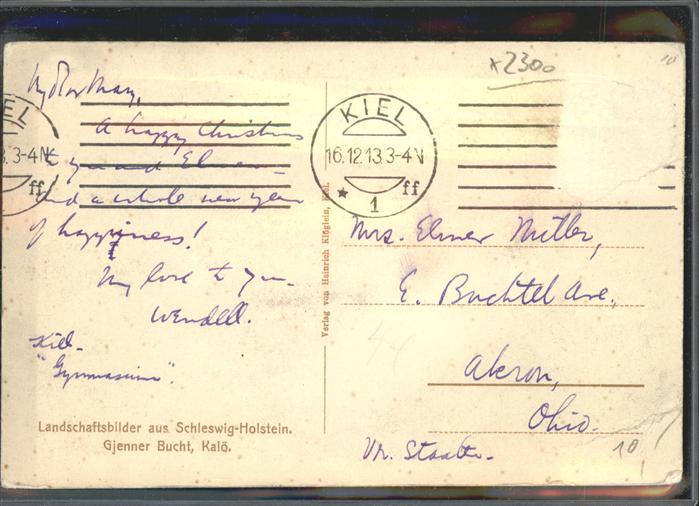 My dear May,
A happy Christmas
to you and Elmer —
and a whole new year
of happiness!
My love to you —
Wendell.
Kiel —
"Gymnasium".
Landschaftsbilder aus Schleswig-Holstein.
Gjenner Bucht, Kalö.
Verlag von Heinrich Klöglein, Kiel.
x2300
10
KIEL
16.12.13.3-4N
* 1 ff
EL
3.3-4N
ff
Mrs. Elmer Miller,
E. Buchtel Ave.,
Akron,
Ohio.
Vr. Staaten.
10